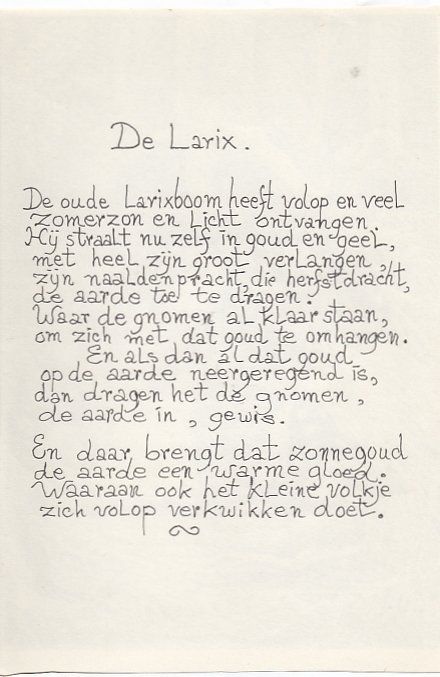 De Larix.
De oude Larixboom heeft volop en veel
zomerzon en Licht ontvangen.
Hij straalt nu zelf in goud en geel,
met heel zijn groot verlangen,
zijn naaldenpracht, die herfstdracht,
de aarde toe te dragen.
Waar de gnomen al klaar staan,
om zich met dat goud te omhangen.
En als dan ál dat goud
op de aarde neergeregend is,
dan dragen het de gnomen,
de aarde in, gewis.
En daar brengt dat zonnegoud
de aarde een warme gloed.
Waaraan ook het kleine volkje
zich volop verkwikken doet.